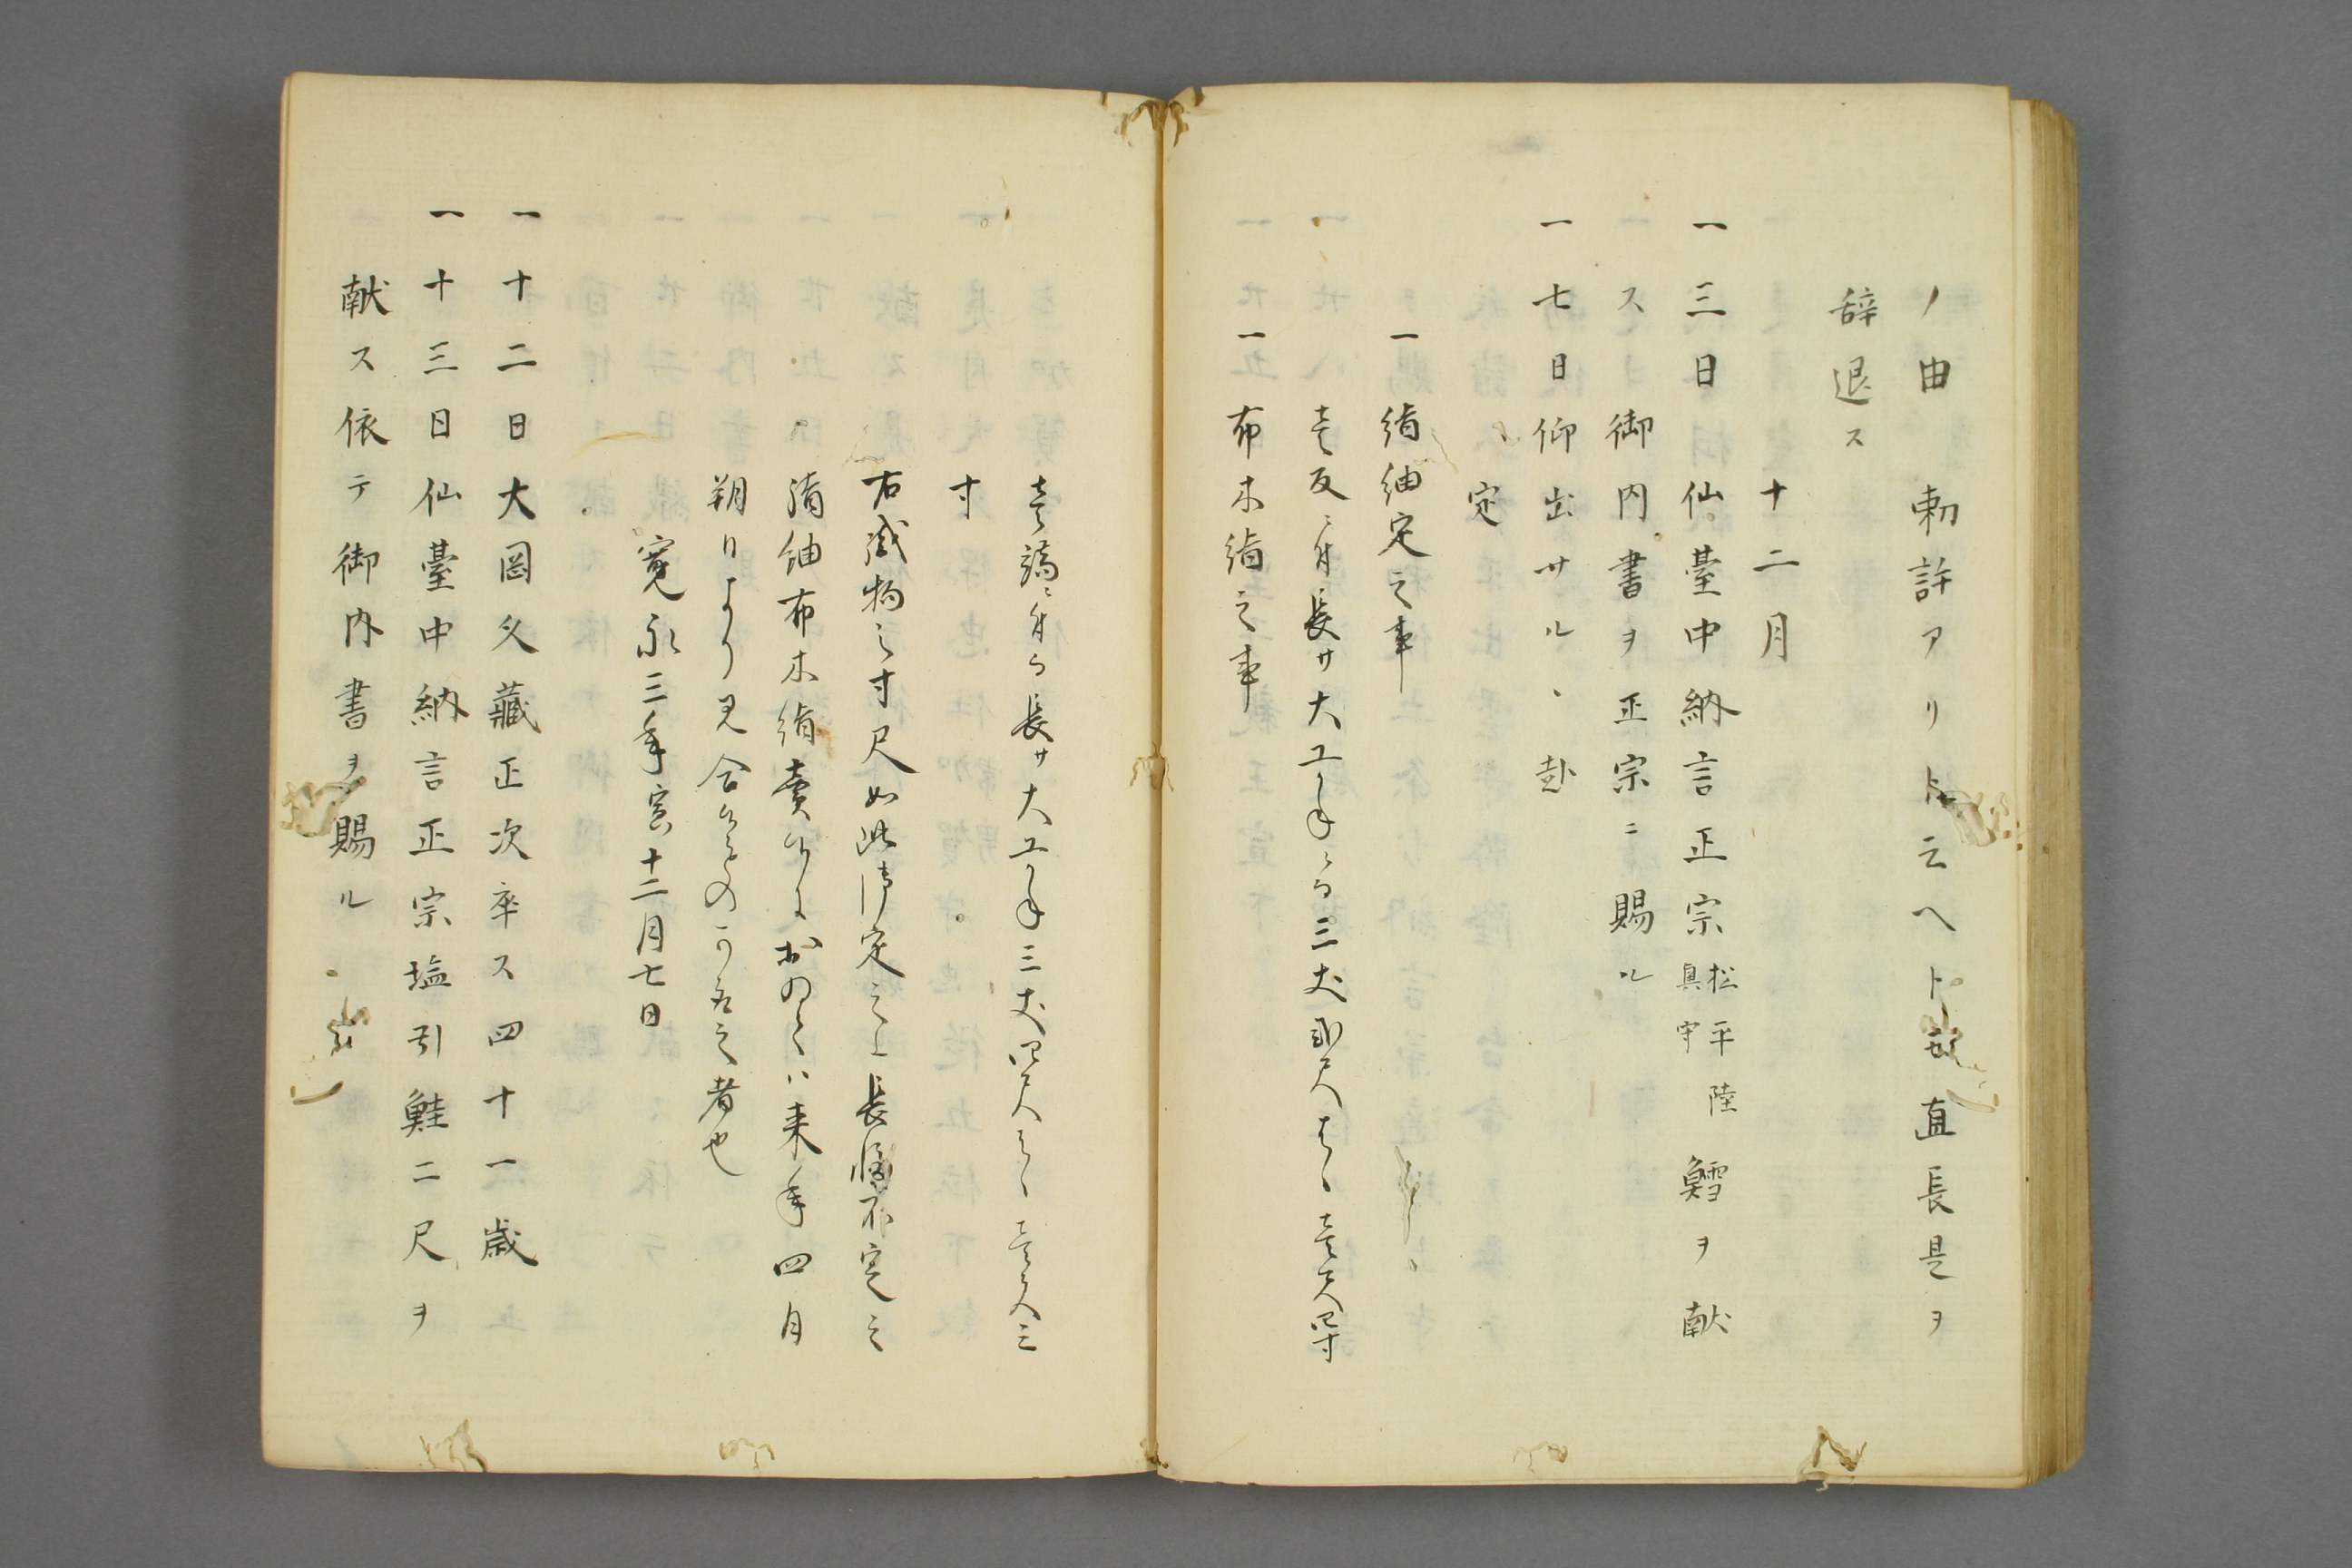 ノ由　勅許アリト云ヘトモ直長是ヲ
辞退ス
十二月
一三日仙臺中納言正宗松平陸奥守鱈ヲ献
ス御内書ヲ正宗ニ賜ル
一七日仰出サルヽ赴
定
一絹紬定之事
壱反ニ付長サ大工かねニ而三丈弐尺はゝ壱尺四寸
一布木綿之事
壱端ニ付而長サ大工かね三丈四尺はゝ壱尺三
寸
右織物之寸尺如此御定之上長幅不定之
絹紬布木綿賣候ニおゐてハ来年四月
朔日より見合候ものゝ可為之者也
寛永三年寅十二月七日
一十二日大岡久藏正次卒ス四十一歳
一十三日仙臺中納言正宗塩引鮭二尺ヲ
献ス依テ御内書ヲ賜ル